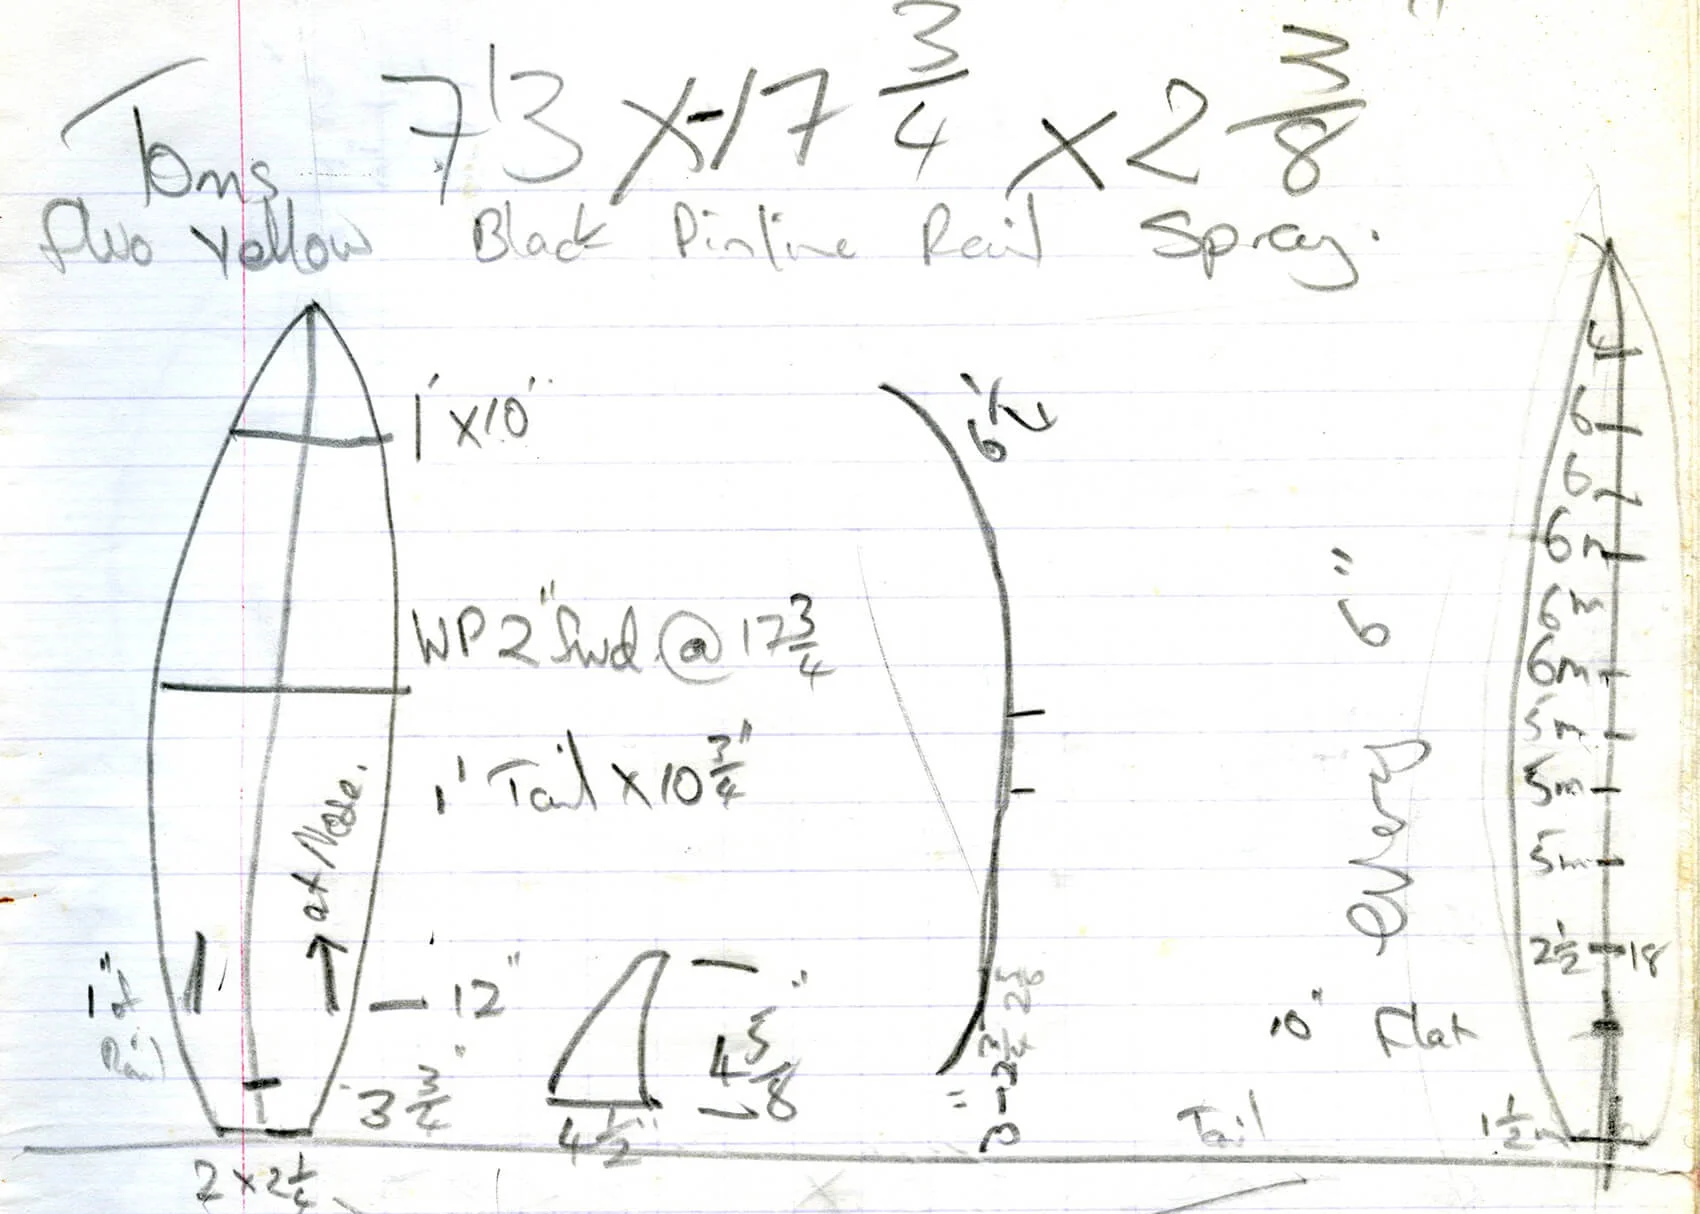 Toms 7'3 x 17 3/4 x 2 3/8
fluo Yellow Black Pinline Rail Spray.
1' x 10"
6 1/4
WP 2" fwd @ 17 3/4
1' Tail x 10 3/4"
at Nose.
1" of Rail
12"
3 3/4"
2 x 2 1/4
4 5/8"
4 1/2"
every 6"
10" Flat
Tail
4
6
6
6m
6m
6m
5m
5m
5m
2 1/2 18
1 1/2m